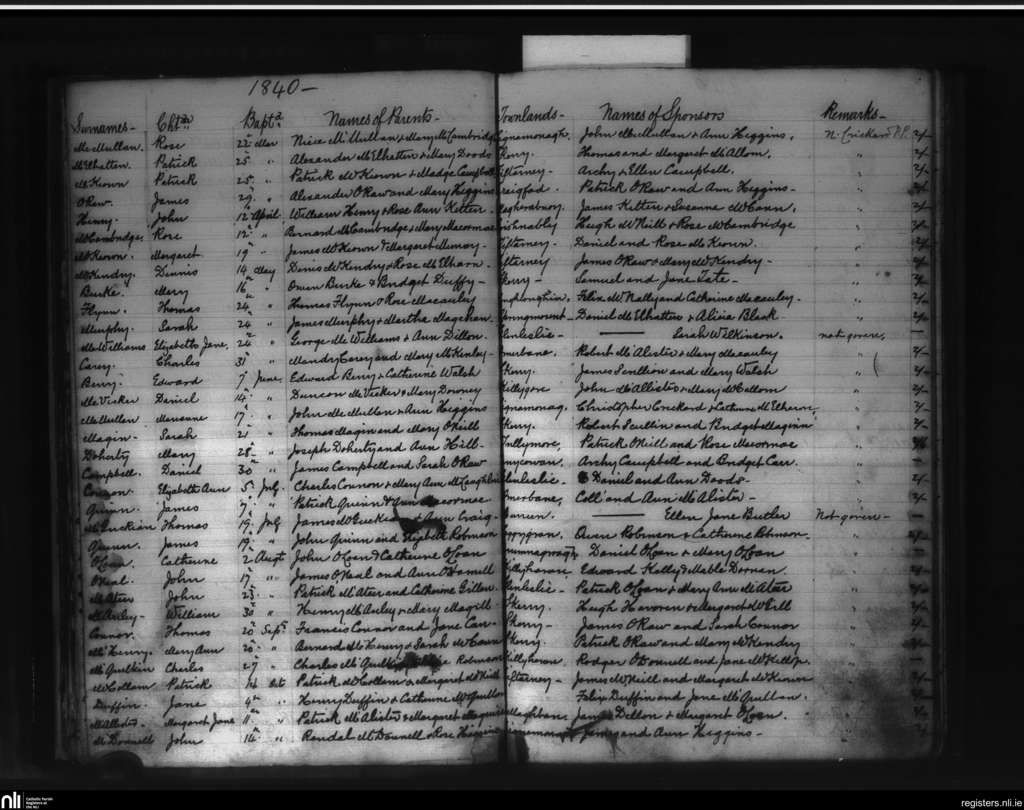 1840 -
Surnames - Chtn Baptd Names of Parents - Townlands - Names of Sponsors Remarks -
McMullan. Rose 22 Mar McMullan & Mary McCambridge John McMullan & Ann Higgins. 2/-
McElhatten. Patrick 25 " Alexander McElhatten & Mary Doods Skerry. Thomas and Margaret McAllom. " 2/-
McKeown Patrick 25 " Patrick McKeown & Madge Campbell Tifterney - Archy & Ellen Campbell. " 2/-
ORaw. James 29 " Alexander ORaw and Mary Higgins Craigfad. Patrick ORaw and Ann Higgins - " 2/-
Henry. John 12 April William Henry & Rose Ann Ketter. James Ketter & Susanna McCann. " 2/-
McCambridge. Rose 12 " Bernard McCambridge & Mary Macormac Hugh McNeill & Rose McCambridge " 2/-
McKeown. Margaret 19 " James McKeown & Margaret Tifterney - Daniel and Rose McKeown. " 2/-
McKendry. Dennis 14 May Denis McKendry & Rose McElharn - Tifterney James ORaw & Mary McKendry - " 2/-
Burke. Mary 16 " Owen Burke & Bridget Duffy - Skerry - Samuel and Jane Tate - " 2/-
Flynn. Thomas 24 " Thomas Flynn & Rose Macauley Felix McNally and Catherine Macauley - " 2/-
Murphy. Sarah 24 " James Murphy & Martha Daniel McElhatten & Alicia Black - " 2/-
McWilliams Elizabeth Jane. 24 " George McWilliams & Ann Dillon. Glenleslie - Sarah Wilkinson. not given. 2/-
Carey. Charles 31 " Carey and Mary McKinley - Omerbane. Robert McAlister & Mary Macauley " 2/-
Berry. Edward 7 June, Edward Berry & Catherine Walsh Skerry. James Scullion and Mary Walsh " 2/-
McVicker Daniel 14 " Duncan McVicker & Mary Downey Killygore John McAllister & Mary McCollom " 2/-
McMullen Marianne 17 " John McMullan & Ann Higgins Christopher Crickard & Catherine " 2/-
Magin - Sarah 21 " Thomas Magin and Mary ONeill Skerry. Robert Scullin and Bridget Maginn " 2/-
Doherty Mary 28 - " Joseph Doherty and Ann Hill - Tullymore, Patrick ONeill and Rose Macormac "
Campbell. Daniel 30 " James Campbell and Sarah ORaw Archy Campbell and Bridget Carr. " -
Connon. Elizabeth Ann 5 July. Charles Connon & Mary Ann McLaughlin Glenleslie - Daniel and Ann Doods - " -
Quinn. James 7 " Patrick Quinn & Ann Macormac Omerbane, Coll and Ann McAlister - " 2/-
McGuckian Thomas 19 July James McGuckian & Ann Craig Ellen Jane Butler Not given - -
Quinn. James 19 " John Quinn and Elizabeth Robinson Owen Robinson & Catherine Robinson. " 2/-
OLoan. Catherine 2 Augt John OLoan & Catherine OLoan Daniel OLoan & Mary OLoan " -
ONeal. John 17 " James ONeal and Ann ODonnell Edward Kelly & Mable Dornan. " -
McAteer John 23 " Patrick McAteer and Catherine Gillon. Glenleslie - Patrick OLoan & Mary Ann McAteer " 2/-
McAuley - William 30 " Henry McAuley & Mary Magill - Skerry. Hugh Havoren & Margaret McGill " 2/-
Connor. Thomas 20 Sept. Francis Connor and Jane Carr - Skerry - James ORaw and Sarah Connor " 2/-
McHenry. Mary Ann 20 " Bernard McHenry & Sarah McCann Skerry. Patrick ORaw and Mary McKendry " 2/-
McQuilkin Charles 27 " Charles McQuilkin Robinson Rodger ODonnell and Jane McKillop. " -
McCollam Patrick Oct. Patrick McCollam & Margaret McNeill Tifterney - James McNeill and Margaret McKeown " 2/-
Duffin. Jane 4 " Henry Duffin & Catherine McQuillan Felix Duffin and Jane McQuillan. " -
McAllister - Margaret Jane 11 " Patrick McAlister & Margaret Maguire James Dillon & Margaret OLoan. " 2/-
McDonnell John 14 " Randal McDonnell & Rose Higgins James and Ann Higgins - " 2/-
nli
Catholic Parish Registers at the NLI
registers.nli.ie